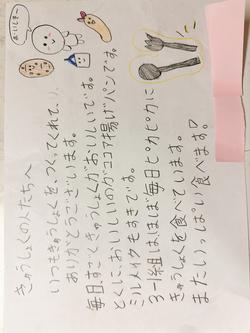 おいしそ〜
きゅうしょくの人たちへ
いつもきゅうしょくを、つくってくれて、
ありがとうございます。
毎日、すごくきゅうしょくがおいしいです。
とくに、おいしいのがココア揚げパンです。
ミルメイクもすきです。
3-1組は、ほぼ毎日ピカピカに
きゅうしょくを食べています。
またいっぱい食べます♡